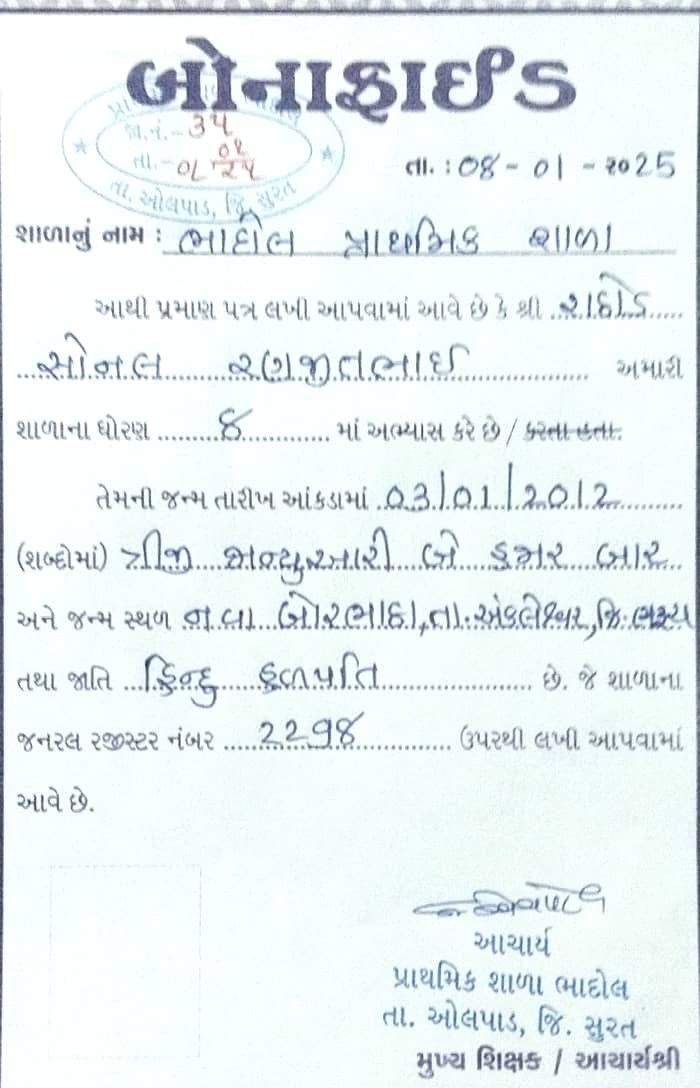 બોનાફાઈડ
પ્રાથમિક શાળા ભાદોલ
જા.નં.- 35
તા.- 08/01/25
તા. ઓલપાડ, જિ. સુરત
તા. : 08 - 01 - 2025
શાળાનું નામ : ભાદોલ પ્રાથમિક શાળા
આથી પ્રમાણ પત્ર લખી આપવામાં આવે છે કે શ્રી રાઠોડ
સોનલ રણજીતભાઈ અમારી
શાળાના ધોરણ 8 માં અભ્યાસ કરે છે / કરતા હતા.
તેમની જન્મ તારીખ આંકડામાં 03/01/2012
(શબ્દોમાં) ત્રીજી જાન્યુઆરી બે હજાર બાર
અને જન્મ સ્થળ નવા બોરભાઠા, તા. અંકલેશ્વર, જિ.
તથા જાતિ હિન્દુ હળપતિ છે. જે શાળાના
જનરલ રજીસ્ટર નંબર 2298 ઉપરથી લખી આપવામાં
આવે છે.
આચાર્ય
પ્રાથમિક શાળા ભાદોલ
તા. ઓલપાડ, જિ. સુરત
મુખ્ય શિક્ષક / આચાર્યશ્રી